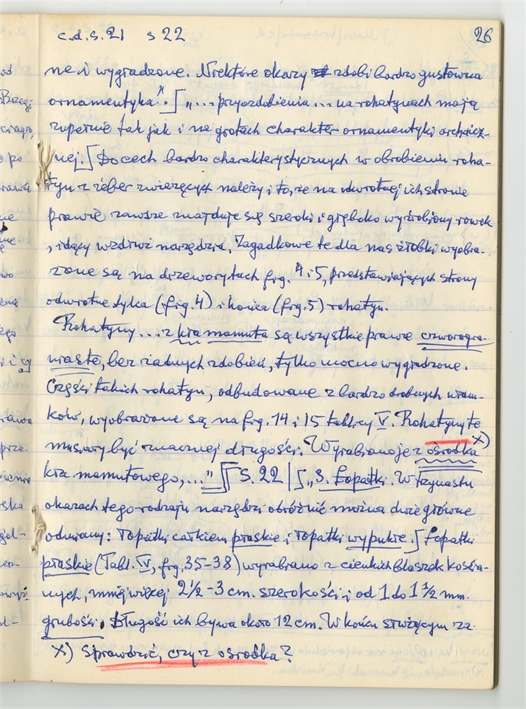 c.d.s. 21 s 22
26
ne i wygładzone. Niektóre okazy zdobi bardzo gustowna
ornamentyka". ⌡"... przyozdobienia... na rohatynach mają
zupełnie tak jak i na grotach charakter ornamentyki archaicz-
nej.⌡ Do cech bardzo charakterystycznych w obrobieniu roha-
tyn z żeber zwierzęcych należy i to, że na odwrotnej ich stronie
prawie zawsze znajduje się szeroki i głęboko wyrobiony rowek
, idący wzdłuż narzędzia. Zagadkowe te dla nas żłobki wyobra-
żone są na drzeworytach fig. 4 i 5, przedstawiających strony
odwrotne tylca (fig. 4) i końca (fig. 5) rohatyn.
Rohatyny ... z kła mamuta są wszystkie prawie czworogra-
niaste, bez żadnych zdobień, tylko mocno wygładzone.
Części takich rohatyn, odbudowane z bardzo drobnych ułam-
ków, wyobrażone są na fig. 14 i 15 tablicy V. Rohatyny te
musiały być znacznej długości. Wyrabiano je z ośrodka x)
kła mamutowego,..." ⌡⌠ S. 22 | ⌠ „3. Łopatki. W trzynastu
okazach tego rodzaju narzędzi odróżnić można dwie główne
odmiany: łopatki całkiem płaskie i łopatki wypukłe.⌡ Łopatki
płaskie (Tabl. IV, fig. 35-38) wyrabiano z cienkich blaszek kościa-
nych, mniej więcej 2½-3 cm. szerokości i od 1 do 1½ mm.
grubości. Długość ich bywa około 12 cm. W końcu służącym za
x) Sprawdzić, czy z ośrodka?